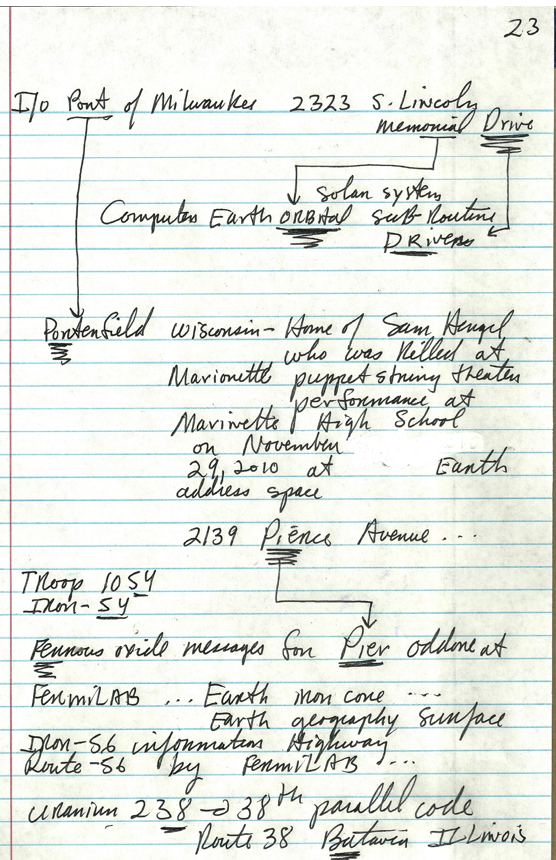 23
I/o Port of Milwaukee 2323 S. Lincoln
Memorial Drive
Solar system
Computer Earth ORBital sub-Routine
DRivers
Porterfield Wisconsin - Home of Sam Hengel
who was killed at
Marionette puppet string theater
performance at
Marinette High School
on November
29, 2010 at Earth
address space
2139 Pierce Avenue ...
Troop 1054
Iron-54
Ferrous oxide messages for Pier oddone at
FermiLAB ... Earth iron core ...
Earth geography surface
Iron-56 information Highway
Route-56 by FermiLAB ...
Uranium 238 → 38th parallel code
Route 38 Batavia ILLinois